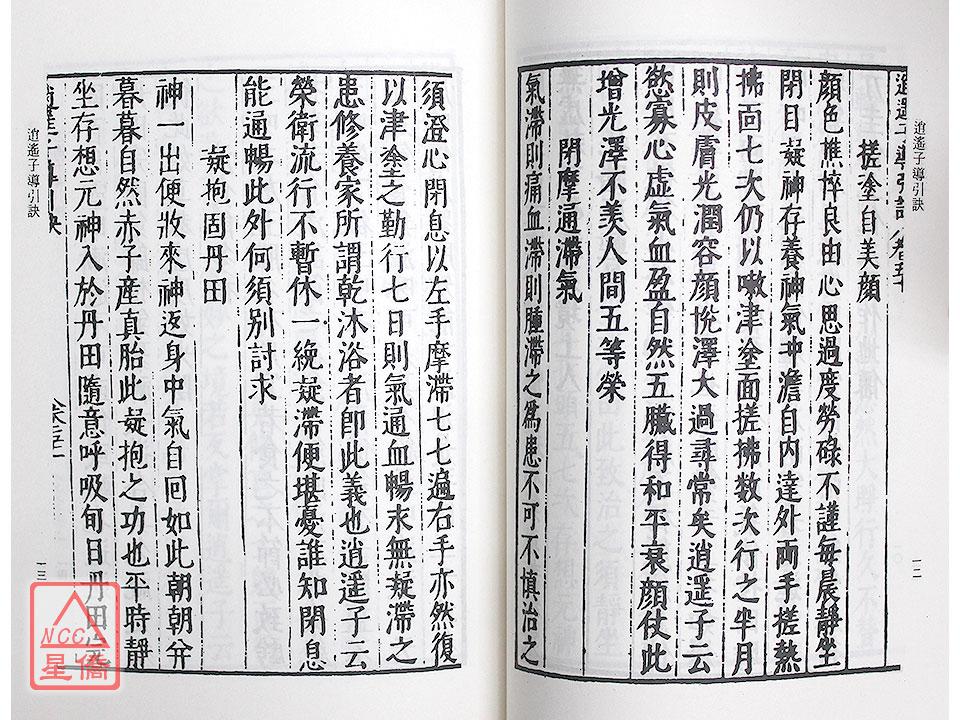 逍遙子導引訣
一二
逍遙子導引訣
搓塗自美顏
顏色憔悴良由心思過度勞碌不謹每晨靜坐
閉目凝神存養神氣冲澹自內達外兩手搓熱
拂面七次仍以嗽津塗面搓拂数次行之半月
則皮膚光潤容顏悅澤大過尋常矣逍遥子云
慾寡心虛氣血盈自然五臟得和平衰顏仗此
增光澤不羡人間五等榮
閉摩通滯氣
氣滯則痛血滯則腫滯之爲患不可不慎治之
須澄心閉息以左手摩滯七七遍右手亦然復
以津塗之勤行七日則氣通血暢永無凝滯之
患修養家所謂乾沐浴者即此義也逍遥子云
榮衛流行不暫休一纔凝滯便堪憂誰知閉息
能通暢此外何須别討求
凝抱固丹田
神一出便收來神返身中氣自回如此朝朝并
暮暮自然赤子産真胎此凝抱之功也平時靜
坐存想元神入於丹田隨意呼吸旬日丹田
逍遙子導引訣
一三
NCC
星僑